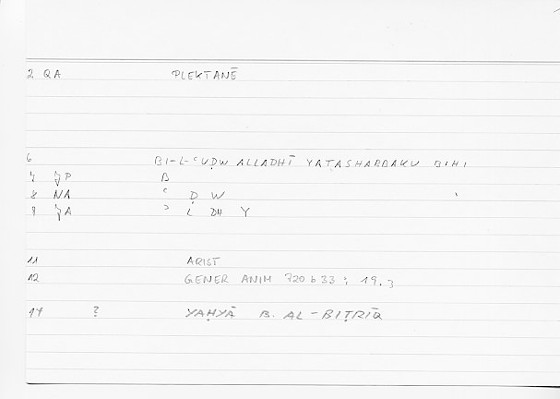 2 QA PLEKTANĒ
6 BI-L-ʿUḌW ALLADHĪ YATASHABBAKU BIHI
7 B
8 NA ʿ Ḍ W
9 ʾ L DH Y
11 ARIST
12 GENER ANIM 720 b 33 ; 19.3
14 ? YAḤYĀ B. AL-BIṬRĪQ